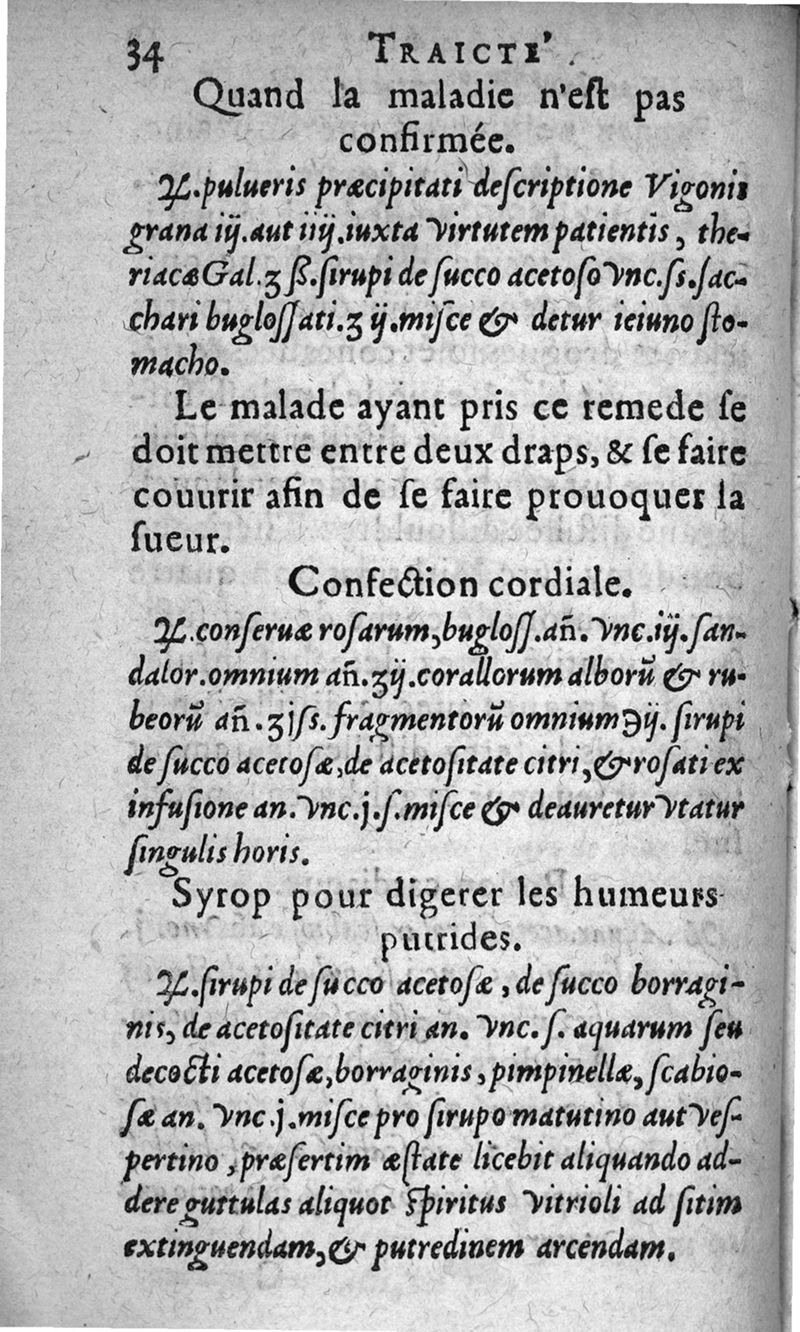 34 TRAICTE'.
Quand la maladie n'eſt pas
confirmée.
℞.pulueris præcipitati deſcriptione Vigonis
grana iij.aut iiij.iuxta virtutem patientis, the-
riacæ Gal.ʒ ß.ſirupi de ſucco acetoſo vnc.ſs.ſac-
chari bugloſſati.ʒ ij.miſce & detur ieiuno ſto-
macho.
Le malade ayant pris ce remede ſe
doit mettre entre deux draps, & ſe faire
couurir afin de ſe faire prouoquer la
ſueur.
Confection cordiale.
℞.conſeruæ roſarum,bugloſſ.añ.vnc.iij.ſan-
dalor.omnium añ.ʒij.corallorum alborū & ru-
beorū añ.ʒjſs.fragmentorū omnium ℈ij. ſirupi
de ſucco acetoſæ,de acetoſitate citri,& roſati ex
infuſione an.vnc.j.ſ.miſce & deauretur vtatur
ſingulis horis.
Syrop pour digerer les humeurs
putrides.
℞.ſirupi de ſucco acetoſæ, de ſucco borragi-
nis, de acetoſitate citri an. vnc.ſ. aquarum ſeu
decocti acetoſæ,borraginis,pimpinellæ,ſcabio-
ſæ an. vnc.j.miſce pro ſirupo matutino aut veſ-
pertino,præſertim æſtate licebit aliquando ad-
dere guttulas aliquot ſpiritus vitrioli ad ſitim
extinguendam,& putredinem arcendam.